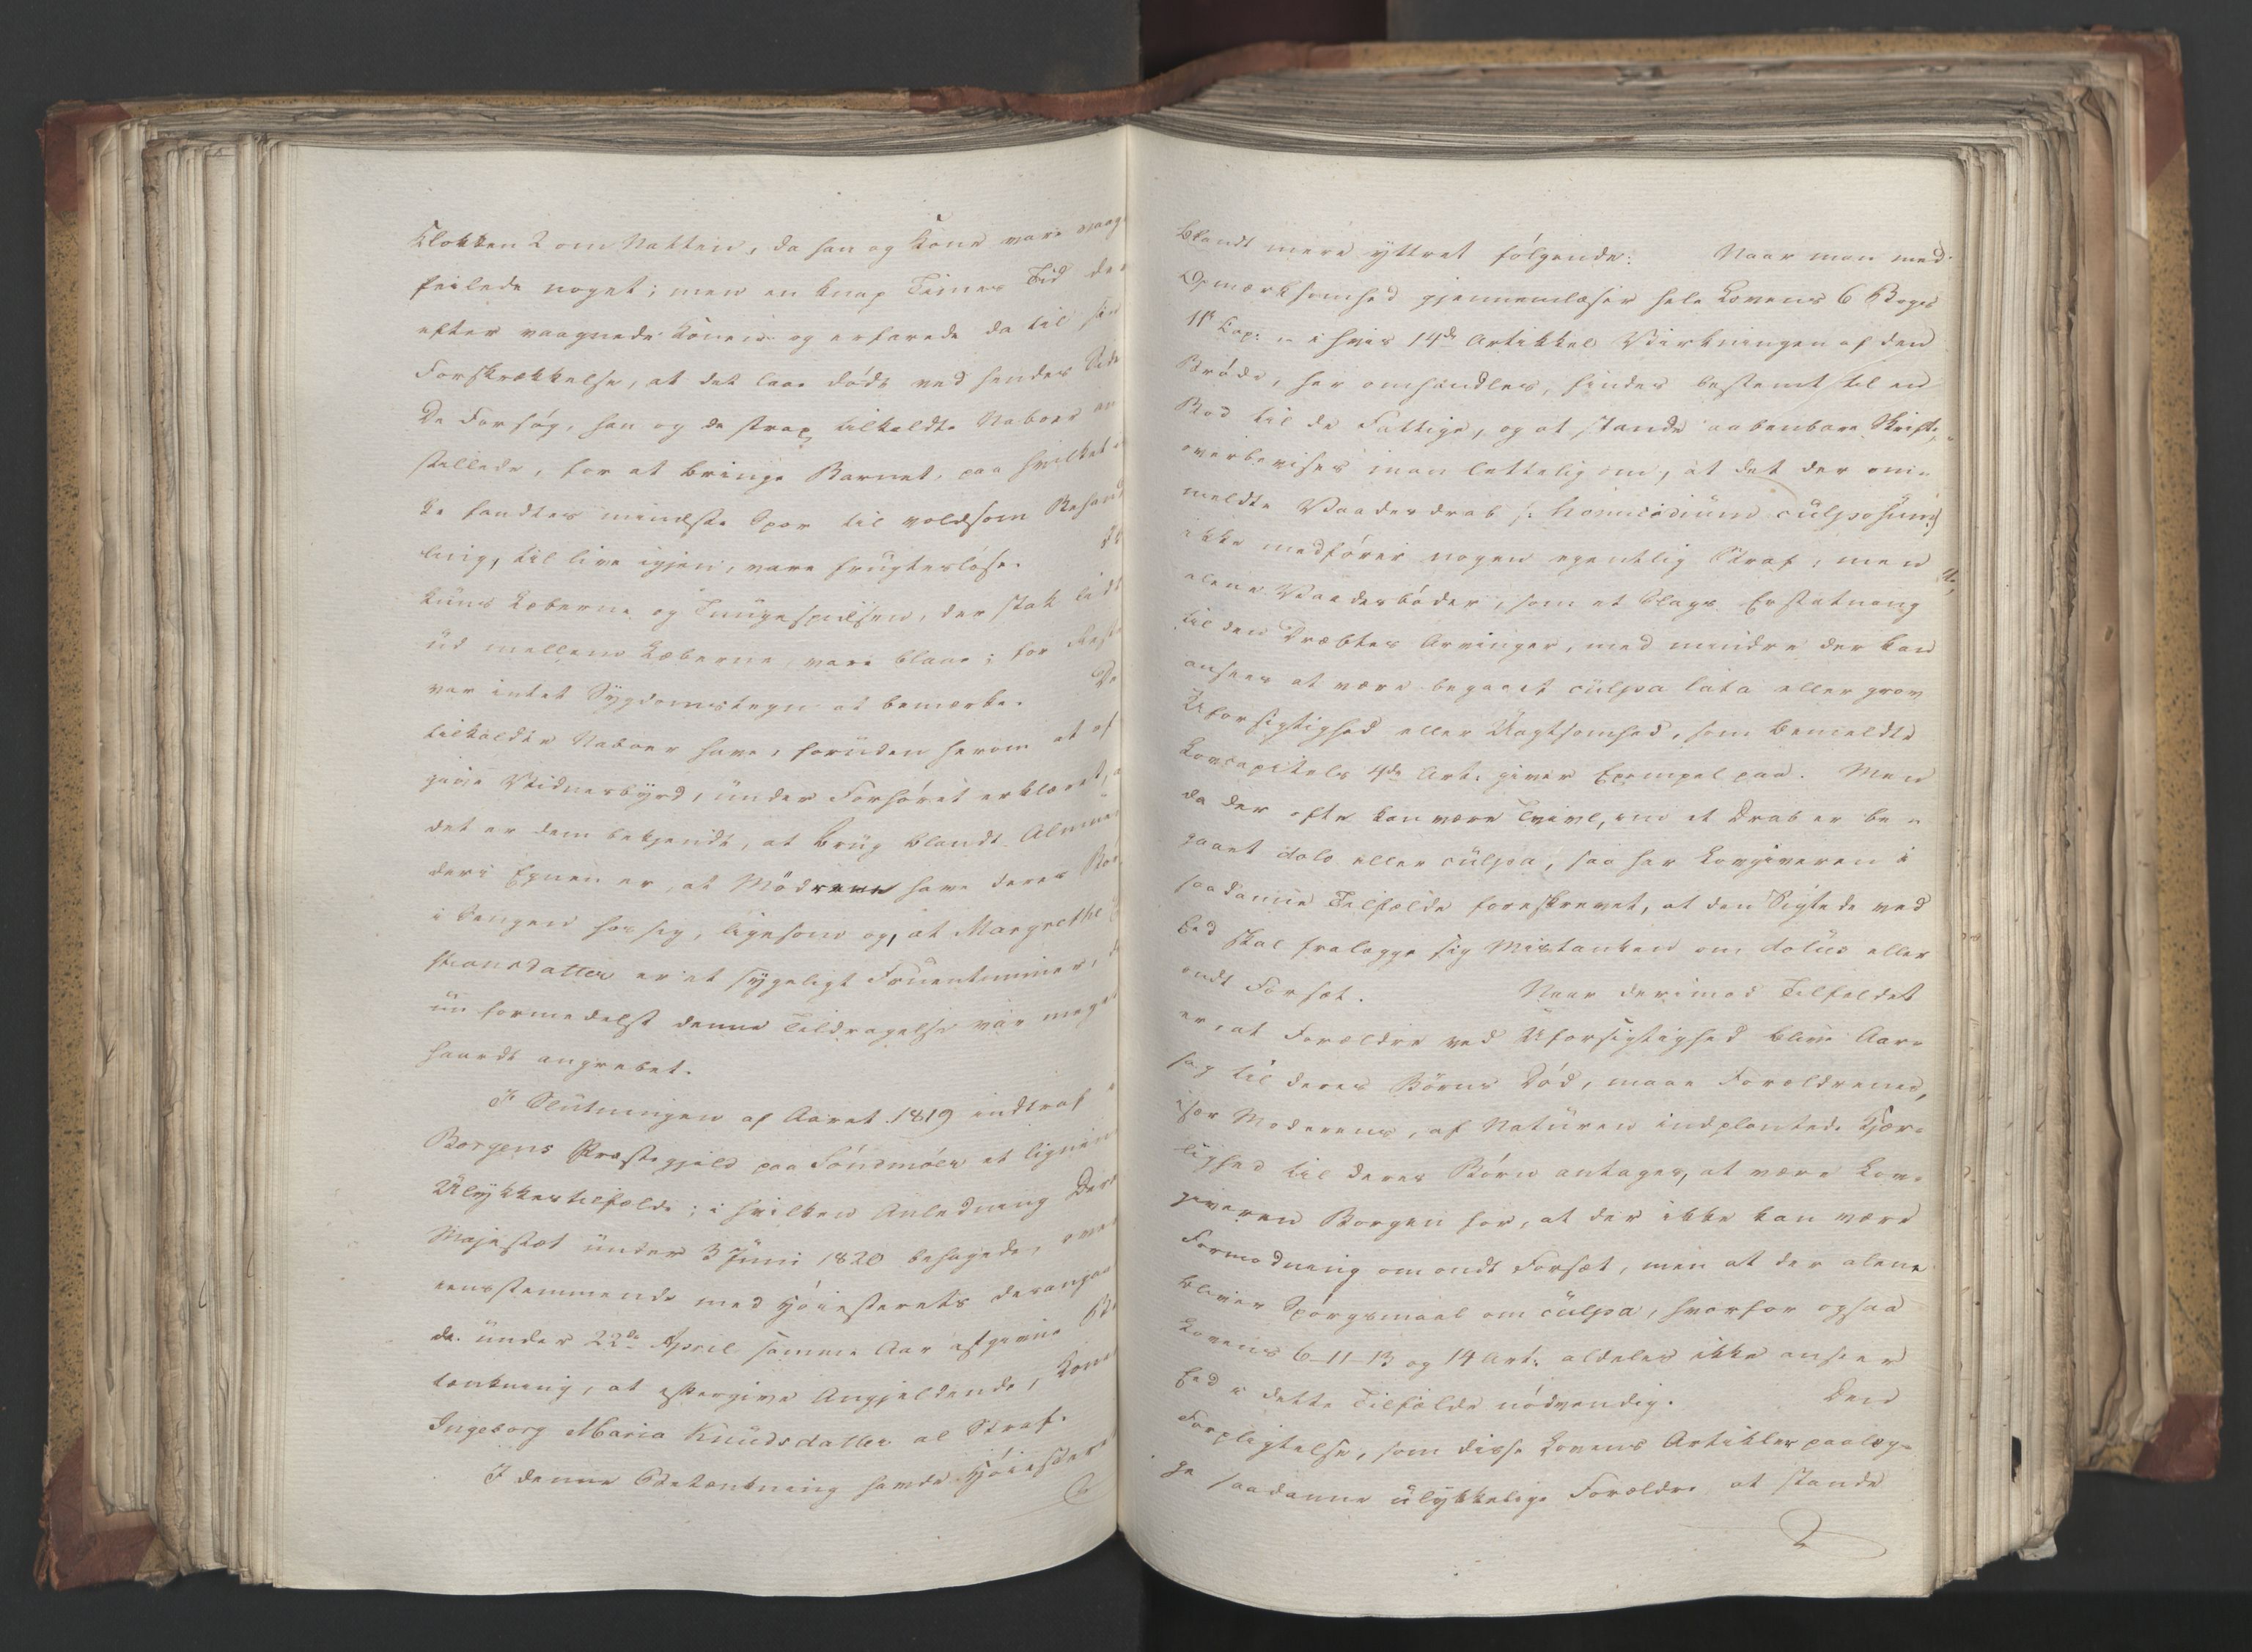 Klokken 2 om Natten, da han og Kone vare vaag
feilede noget; men en knap Times Tid der
efter vaagnede Konen og erfarede da til sin
Forskrækkelse, at det laae dødt ved hendes Side
De Forsøg, han og de strax tilkaldte Naboer an
stillede, for at bringe Barnet, paa hvilket ei
ke fandtes mindste Spor til voldsom Behand
ling, til live igjen, vare frugtesløse.
kuns Læberne og Tungespidsen, der stak lidt
ud mellem Læberne, vare blaae; for Rest
var intet Sygdomstegn at bemærke. De
tilkaldte Naboer have, foruden herom at af
give Vidnesbyrd, under Forhøret erklæret, a
det er dem bekjendt, at Brug blandt Almue
der i Egnen er, at Mødrene have deres Bør
i Sengen hos sig, ligesom og, at Margrethe
stiansdatter er et sygeligt Fruentimmer, d
nu formedelst denne Tildragelse var meget
haardt angrebet.
I Slutningen af Aaret 1819 indtraf i
Borgens Præstegjeld paa Søndmøer et lignen
Ulykkestilfælde; i hvilken Anledning Deres
Majestæt under 3 Juni 1820 behagede, over
eensstemmende med Høiesterets derangaaen
de under 22de April samme Aar afgivne Be
tænkning, at eftergive Angjeldende, Kone
Ingeborg Maria Knudsdatter al Straf.
I denne Betænkning havde Høiestere
blandt mere yttret følgende: Naar man med
Opmærksomhed gjennemlæser hele Lovens 6 Bogs
11te Cap. i hvis 14de Artikkel Virkningen af den
Brøde, her omhandles, findes bestemt til en
Bod til de Fattige, og at stande aabenbare Skrifte,
overbevises man lettelig om, at det der om-
meldte Vaadesdrab /: homicidium culposum :/
ikke medfører nogen egentlig Straf, men
alene Vaadesbøder, som et Slags Erstatning
til den Dræbtes Arvinger, med mindre der kan
ansees at være begaaet culpa lata eller grov
Uforsigtighed eller Uagtsomhed, som bemeldte
Lovcapitels 4de Art. giver Exempel paa. Men
da der ofte kan være Tvivl, om et Drab er be-
gaaet dolo eller culpa, saa har Lovgiveren i
saadanne Tilfælde foreskrevet, at den Sigtede ved
Eed skal fralægge sig Mistanken om dolus eller
ondt Forsæt. Naar derimod Tilfældet
er, at Forældre ved Uforsigtighed blive Aar-
sag til deres Børns Død, maae Forældrenes,
især Moderens, af Naturen indplantede Kjær-
lighed til deres Børn antages, at være Lov-
giveren Borgen for, at der ikke kan være
Formodning om ondt Forsæt, men at der alene
bliver Spørgsmaal om culpa, hvorfor ogsaa
Lovens 6-11-13 og 14 Art. aldeles ikke anseer
Eed i dette Tilfælde nødvendig. Den
Forpligtelse, som disse Lovens Artikler paalæg-
ge saadanne ulykkelige Forældre at stande